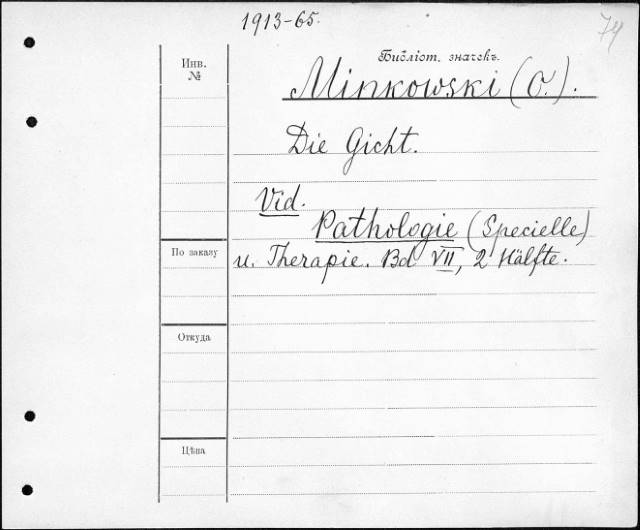 1913-65.
74
Инв.
№
Библіот. значекъ.
Minkowski (O.).
Die Gicht.
Vid.
Pathologie (Specielle)
По заказу
u. Therapie. Bd VII, 2 Hälfte.
Откуда
Цѣна